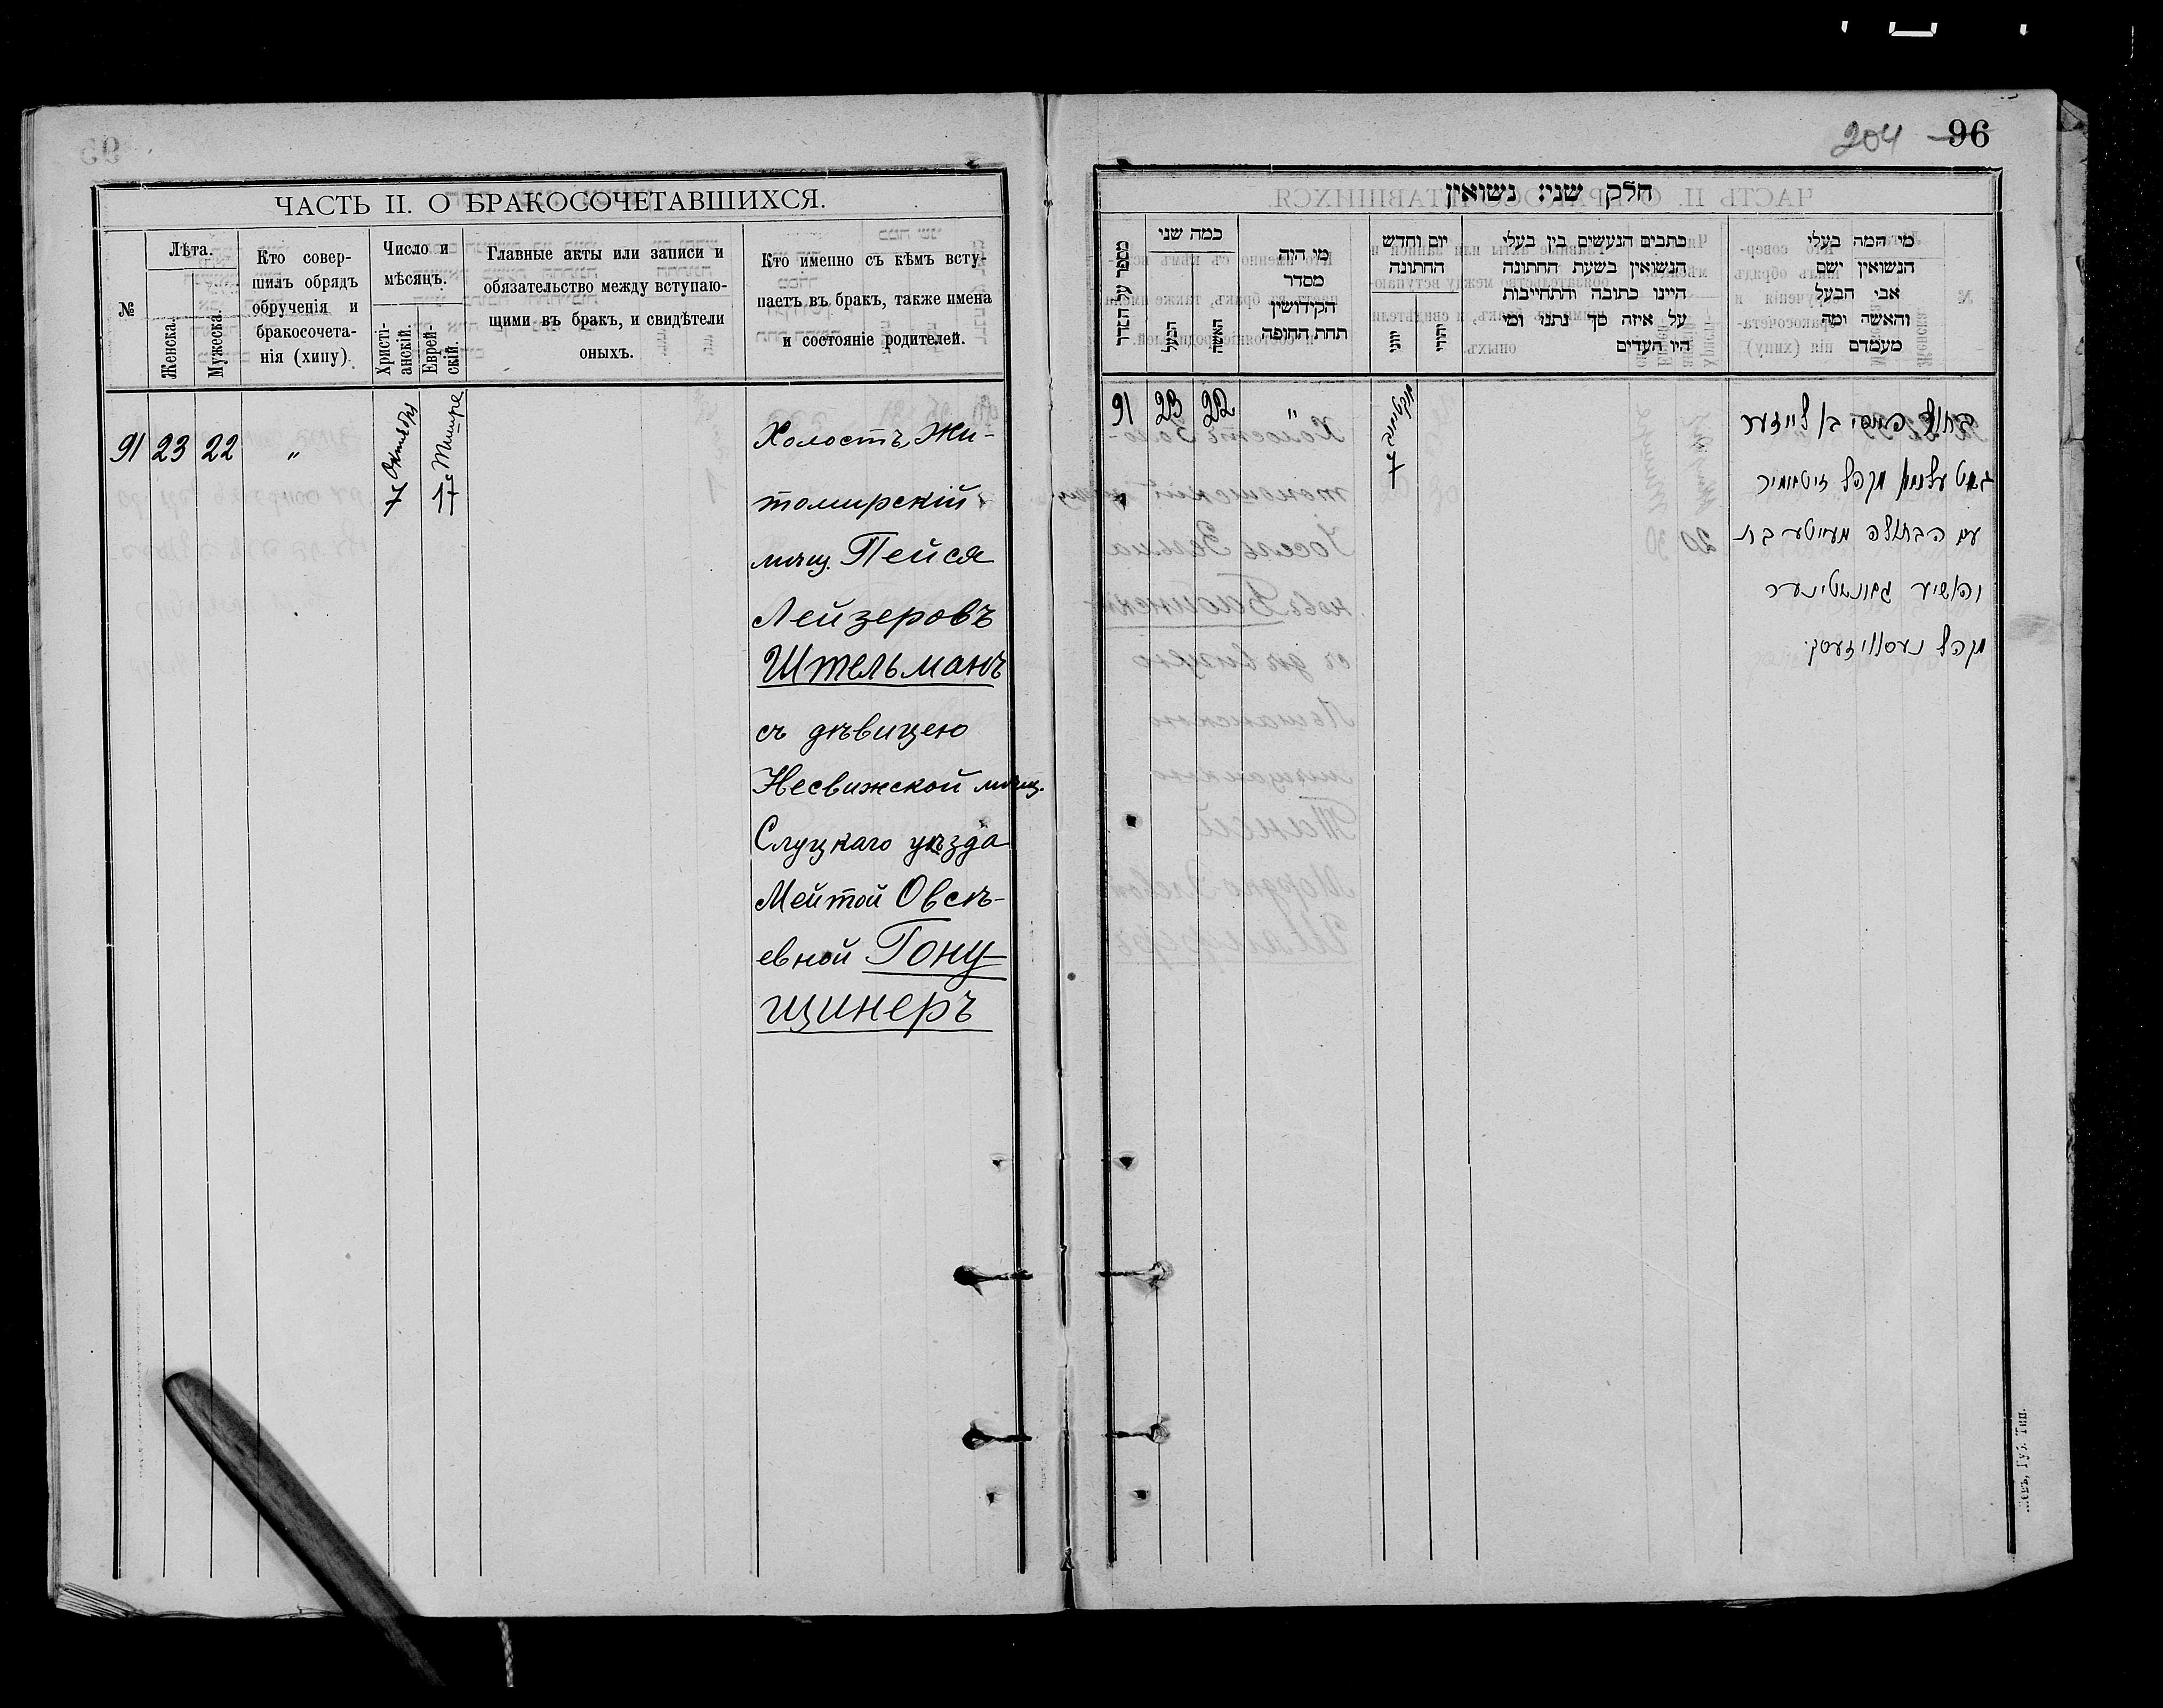 ЧАСТЬ II. О БРАКОСОЧЕТАВШИХСЯ.
№
Лѣта.
Женска.
Мужеска.
Кто совер-
шилъ обрядъ
обрученія и
бракосочета-
нія (хипу).
Число и
мѣсяцъ.
Христі-
анскій.
Еврей-
скій.
Главные акты или записи и
обязательство между вступаю-
щими въ бракъ, и свидѣтели
оныхъ.
Кто именно съ кѣмъ всту-
паетъ въ бракъ, также имена
и состояніе родителей.
91 23 22 „ 7 Октября 17 Тишре
Холостъ Жи-
томирскій
мѣщ. Пейся
Лейзеровъ
Штельманъ
съ дѣвицею
Несвижской мѣщ.
Слуцкаго уѣзда
Мейтой Овсѣ-
евной Гону-
щинеръ
204 96
חלק שני: נשואין
מספר על הסדר
כמה שני
הבעל
האשה
מי היה
מסדר
הקידושין
תחת החופה
יום וחדש
החתונה
יוני
יהודי
כתבים הנעשים בין בעלי
הנשואין בשעת החתונה
היינו כתובה והתחייבות
על איזה סך נתנו ומי
היו העדים
מי המה בעלי
הנשואין ושם
אבי הבעל
והאשה ומה
מעמדם
91 23 22 „ 7
הבחור פייסי בן לייזער
מקהל זיטאמיר
עם הבתולה מעייטע בת
והאשיע
מקהל נעסוויזעסק